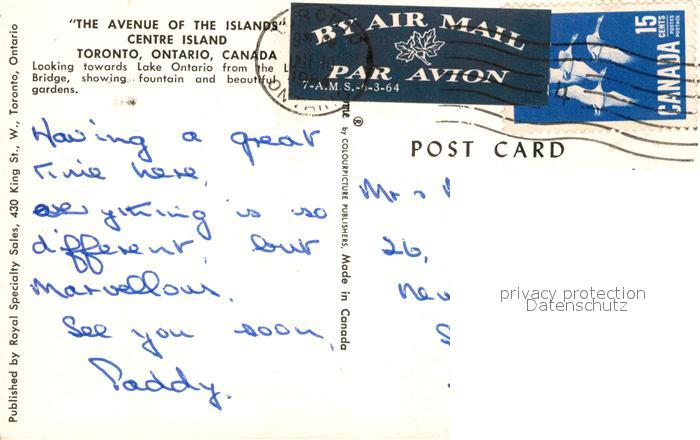 "THE AVENUE OF THE ISLANDS"
CENTRE ISLAND
TORONTO, ONTARIO, CANADA
Looking towards Lake Ontario from the
Bridge, showing fountain and beautiful
gardens.
BY AIR MAIL
PAR AVION
7-A.M.S.-6-3-64
15
CENTS
POSTES
POSTAGE
CANADA
POST CARD
Having a great
time here,
everything is so
different, but
marvellous.
See you soon,
Paddy.
Mr
26,
Published by Royal Specialty Sales, 430 King St., W., Toronto, Ontario
by COLOURPICTURE PUBLISHERS, Made in Canada
privacy protection
Datenschutz